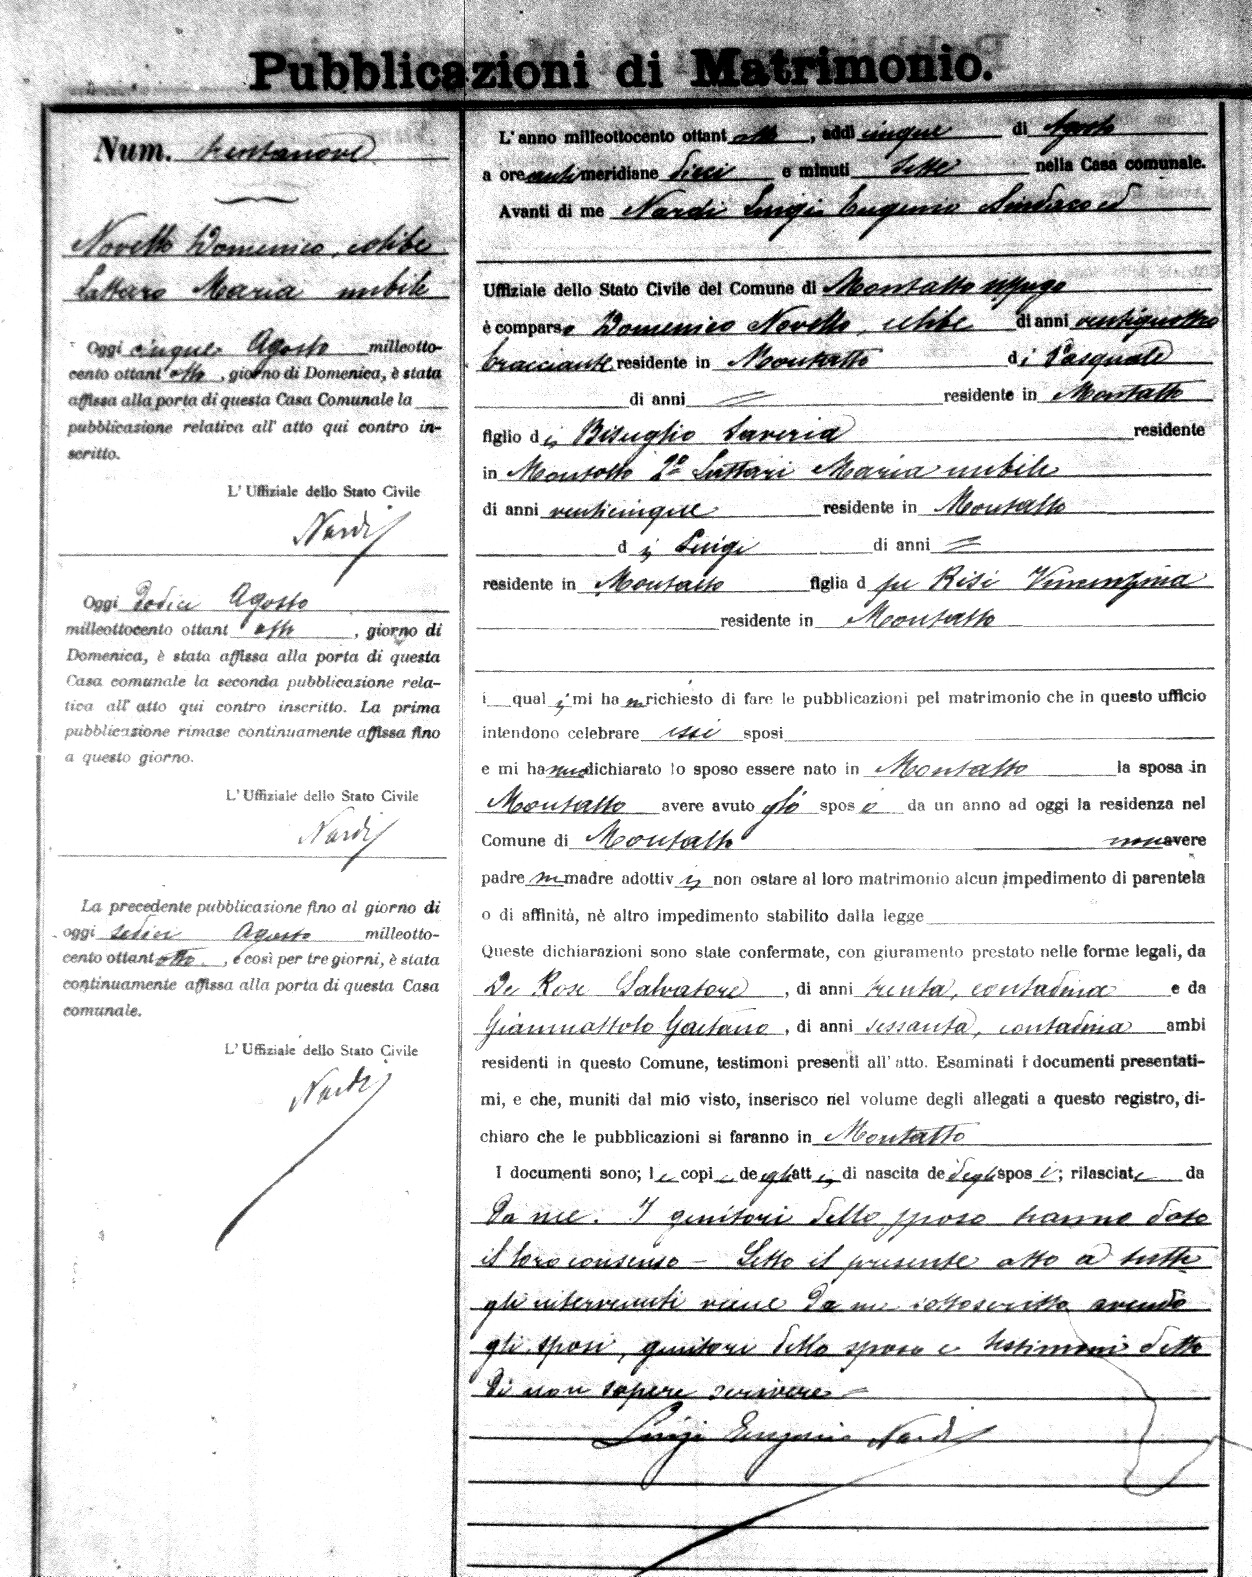 Pubblicazioni di Matrimonio.
Num. trentanove
Novello Domenico, celibe
Lattaro Maria nubile
Oggi cinque Agosto milleotto-
cento ottant'otto, giorno di Domenica, è stata
affissa alla porta di questa Casa Comunale la
pubblicazione relativa all' atto qui contro in-
scritto.
L' Uffiziale dello Stato Civile
Nardi
Oggi dodici Agosto
milleottocento ottant otto, giorno di
Domenica, è stata affissa alla porta di questa
Casa comunale la seconda pubblicazione rela-
tiva all' atto qui contro inscritto. La prima
pubblicazione rimase continuamente affissa fino
a questo giorno.
L' Uffiziale dello Stato Civile
Nardi
La precedente pubblicazione fino al giorno di
oggi sedici Agosto milleotto-
cento ottant otto, e così per tre giorni, è stata
continuamente affissa alla porta di questa Casa
comunale.
L' Uffiziale dello Stato Civile
Nardi
L' anno milleottocento ottant otto, addì cinque di Agosto
a ore antimeridiane dieci e minuti sette nella Casa comunale.
Avanti di me Nardi Luigi Eugenio Sindaco ed
Uffiziale dello Stato Civile del Comune di Montalto Uffugo
è comparso Domenico Novello, celibe di anni ventiquattro
bracciante, residente in Montalto di Pasquale
di anni residente in Montalto
figlio di Bisuglio Saveria residente
in Montalto 2° Lattari Maria nubile
di anni venticinque residente in Montalto
di Luigi di anni
residente in Montalto figlia d fu Risi Vincenzina
residente in Montalto
i quali mi han richiesto di fare le pubblicazioni pel matrimonio che in questo ufficio
intendono celebrare essi sposi
e mi hanno dichiarato lo sposo essere nato in Montalto la sposa in
Montalto avere avuto gli sposi da un anno ad oggi la residenza nel
Comune di Montalto non avere
padre nè madre adottivi non ostare al loro matrimonio alcun impedimento di parentela
o di affinità, nè altro impedimento stabilito dalla legge
Queste dichiarazioni sono state confermate, con giuramento prestato nelle forme legali, da
De Rose Salvatore, di anni trenta, contadina e da
Giannattolo Gaetano, di anni sessanta, contadina ambi
residenti in questo Comune, testimoni presenti all' atto. Esaminati i documenti presentati-
mi, e che, muniti dal mio visto, inserisco nel volume degli allegati a questo registro, di-
chiaro che le pubblicazioni si faranno in Montalto
I documenti sono; le copie degli atti di nascita de degli sposi; rilasciate da
da me. I genitori dello sposo hanno dato
il loro consenso - Letto il presente atto a tutti
gli intervenuti viene da me sottoscritto avendo
gli sposi, genitori dello sposo e testimoni detto
di non sapere scrivere
Luigi Eugenio Nardi